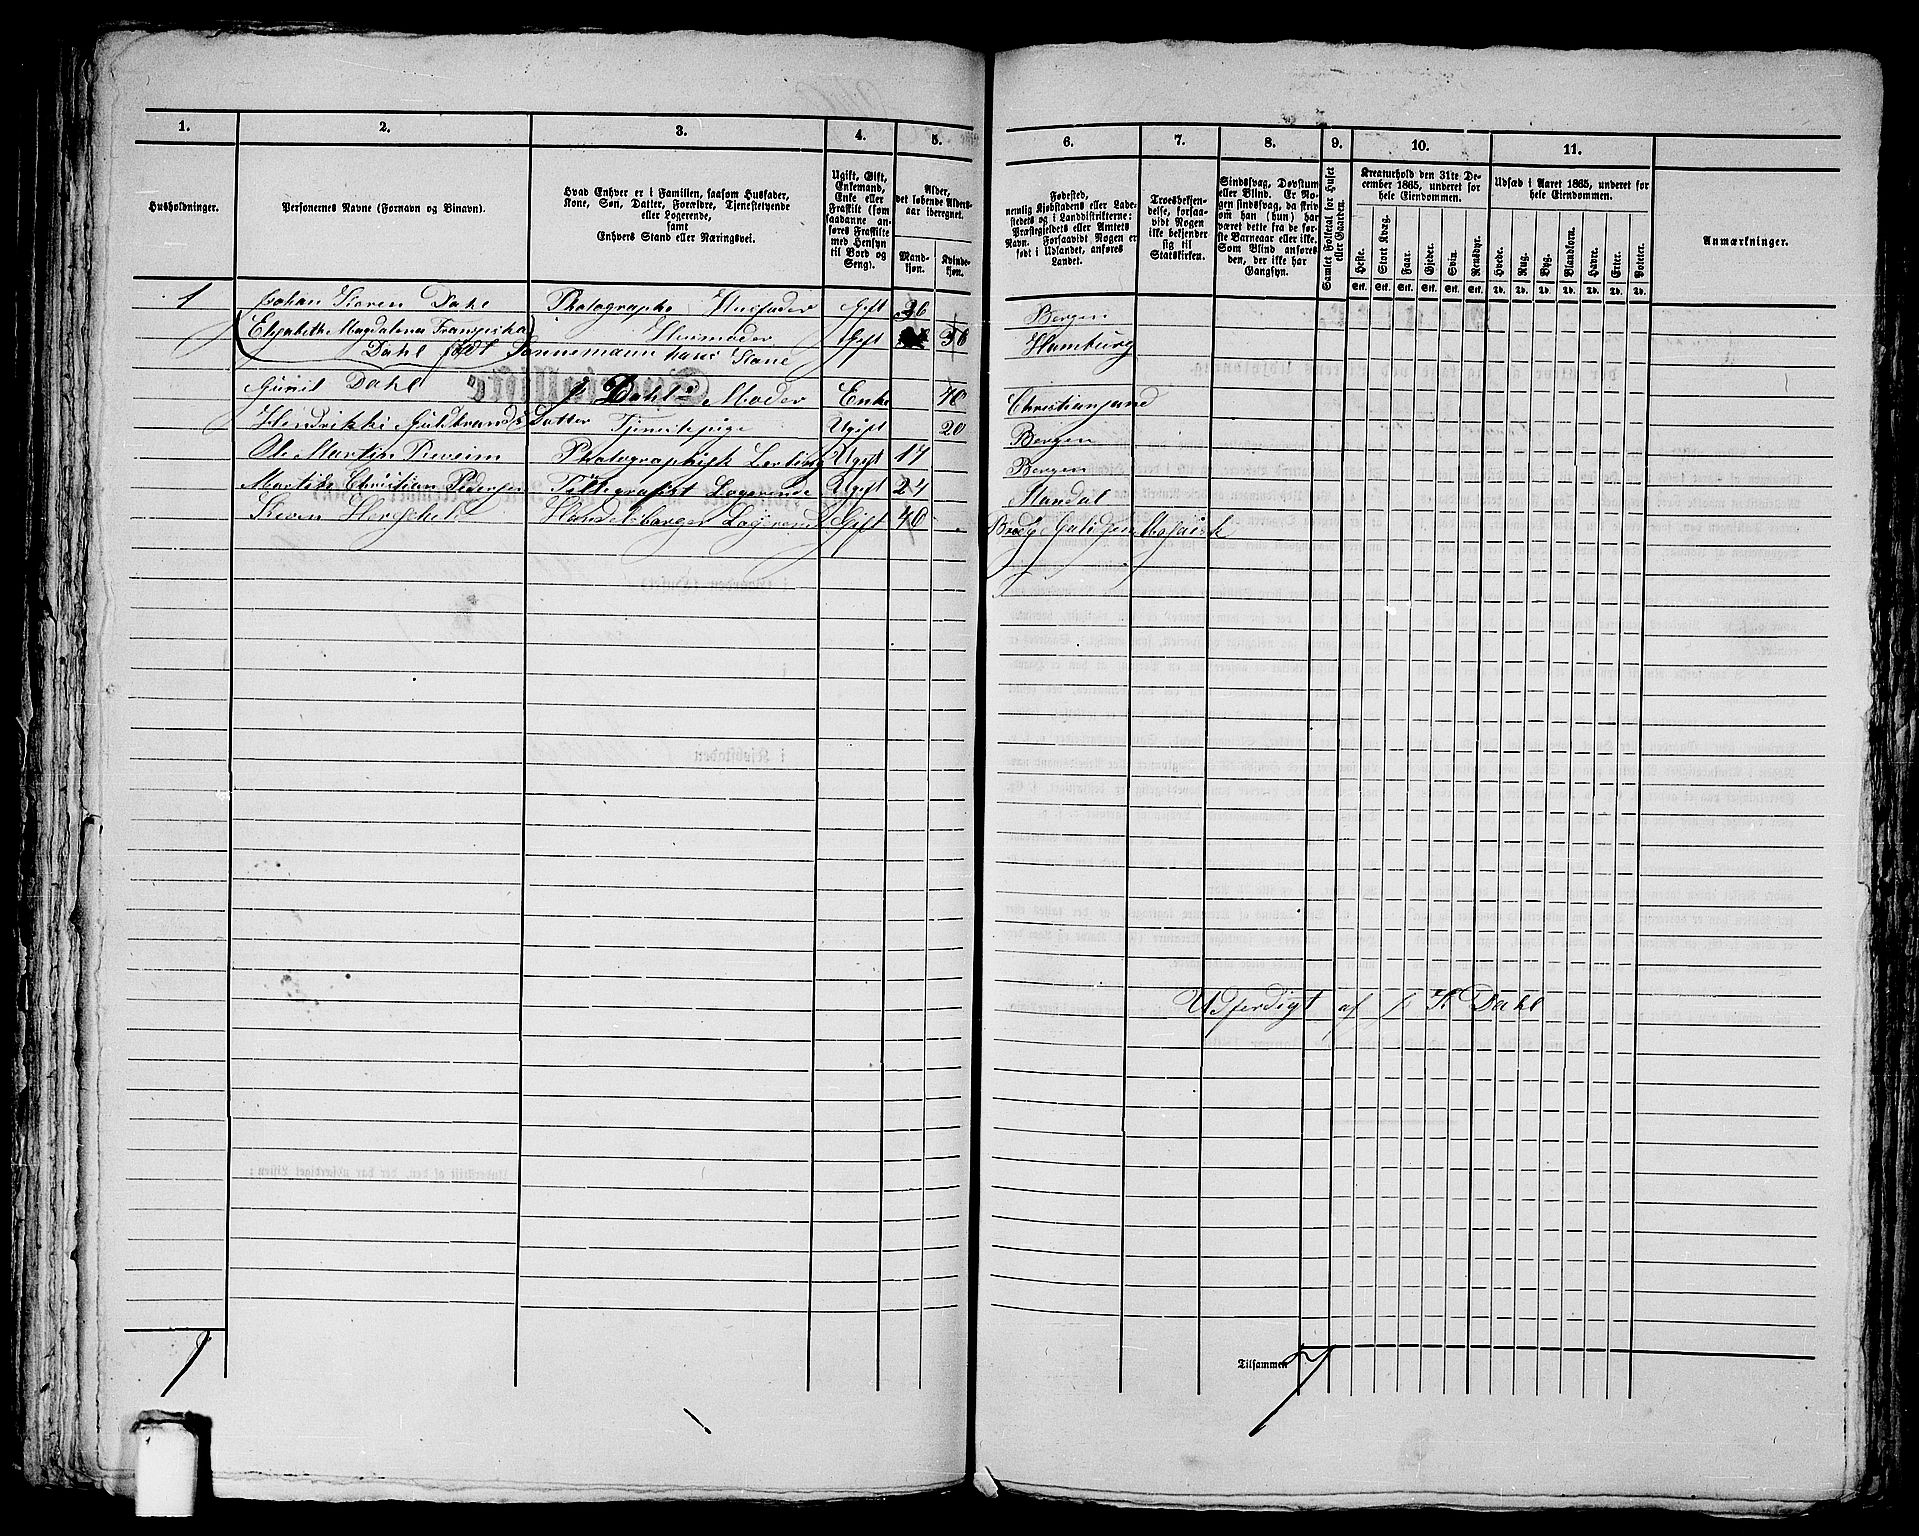 1. 2. 3. 4. 5. 6. 7. 8. 9. 10. 11.
Husholdninger.
Personernes Navne (Fornavn og Binavn).
Hvad Enhver er i Familien, saasom Husfader,
Kone, Søn, Datter, Forældre, Tjenestetyende
eller Logerende,
samt
Enhvers Stand eller Næringsvei.
Ugift, Gift,
Enkemand,
Enke eller
Fraskilt (som
saadanne an-
føres Fraskilte
med Hensyn
til Bord og
Seng).
Alder,
det løbende Alders-
aar iberegnet.
Mand-
kjøn.
Kvinde-
kjøn.
Fødested,
nemlig Kjøbstadens eller Lade-
stedets og i Landdistrikterne:
Præstegjeldets eller Amtets
Navn. Forsaavidt Nogen er
født i Udlandet, anføres
Landet.
Troesbekjen-
delse, forsaa-
vidt Nogen
ikke bekjender
sig til
Statskirken.
Sindssvag, Døvstum
eller Blind. Er No-
gen sindssvag, da skriv
om han (hun) har
været dette fra de før-
ste Barneaar eller ikke.
Som Blind anføres
den, der ikke har
Gangsyn.
Samlet Folketal for Huset
eller Gaarden.
Kreaturhold den 31te De-
cember 1865, underet for
hele Eiendommen.
Heste. Stort Kvæg. Faar. Gjeder. Svin. Rensdyr.
Stk. Stk. Stk. Stk. Stk. Stk.
Udsæd i Aaret 1865, underet for
hele Eiendommen.
Hvede. Rug. Byg. Blandkorn. Havre. Erter. Poteter.
Td. Td. Td. Td. Td. Td. Td.
Anmærkninger.
1 Johan Dahl Photographe Husfader Gift 36 Bergen
Elisabeth Magdalena Husmoder Gift 36 Hamburg
Dahl født Sonnemann hans Kone
Dahl J Dahls Moder Enke 70 Christiansund
Datter Tjenestepige Ugift 20 Bergen
Ole Martin Photographisk Lærling Ugift 17 Bergen
Christian Pedersen Logerende Ugift 24 Mandal
Logerende Gift 46
Udferdigt af J H Dahl
1
Tilsammen 7